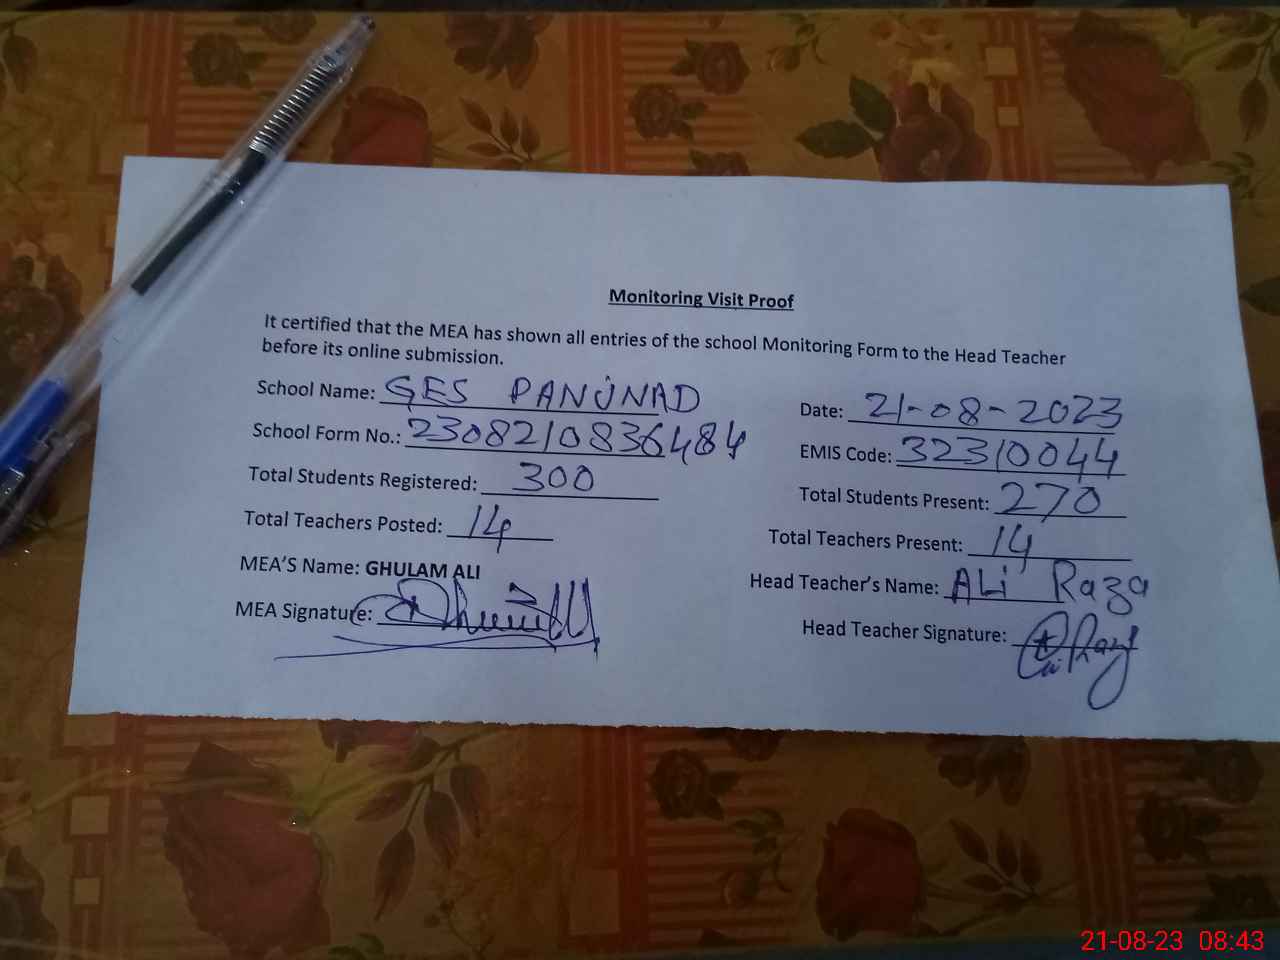 Monitoring Visit Proof
It certified that the MEA has shown all entries of the school Monitoring Form to the Head Teacher
before its online submission.
School Name: GES PANJNAD
Date: 21-08-2023
School Form No.: 2308210836484
EMIS Code: 32310044
Total Students Registered: 300
Total Students Present: 270
Total Teachers Posted: 14
Total Teachers Present: 14
MEA'S Name: GHULAM ALI
Head Teacher's Name: ALi Raza
MEA Signature:
Head Teacher Signature:
21-08-23 08:43